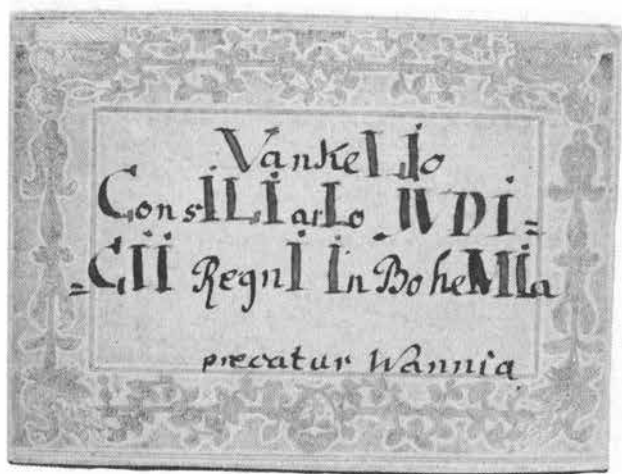 VanKeLIo
ConsILIarIo IVDI=
=CII RegnI In BoheMIa
precatur Wannia